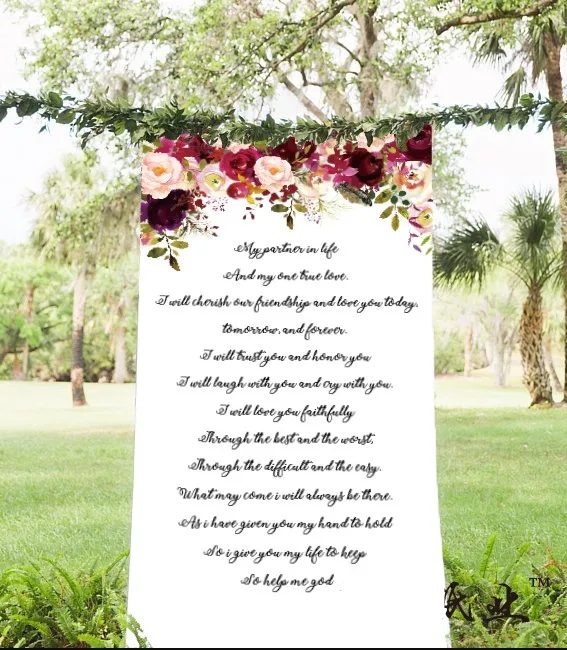 My partner in life
And my one true love.
I will cherish our friendship and love you today,
tomorrow, and forever.
I will trust you and honor you
I will laugh with you and cry with you.
I will love you faithfully
Through the best and the worst,
Through the difficult and the easy.
What may come i will always be there.
As i have given you my hand to hold
So i give you my life to keep
So help me god
TM